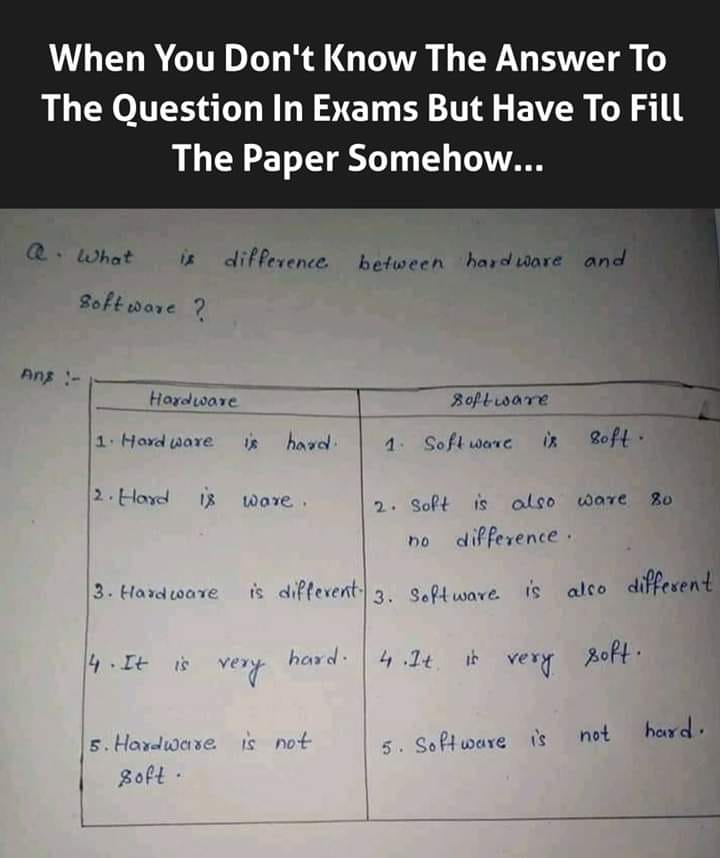 When You Don't Know The Answer To
The Question In Exams But Have To Fill
The Paper Somehow...
Q. What is difference between hardware and
Software ?
Ans :-
Hardware Software
1. Hardware is hard. 1. Software is soft.
2. Hard is ware. 2. Soft is also ware so
no difference.
3. Hardware is different. 3. Software is also different
4. It is very hard. 4. It is very soft.
5. Hardware is not 5. Software is not hard.
soft.